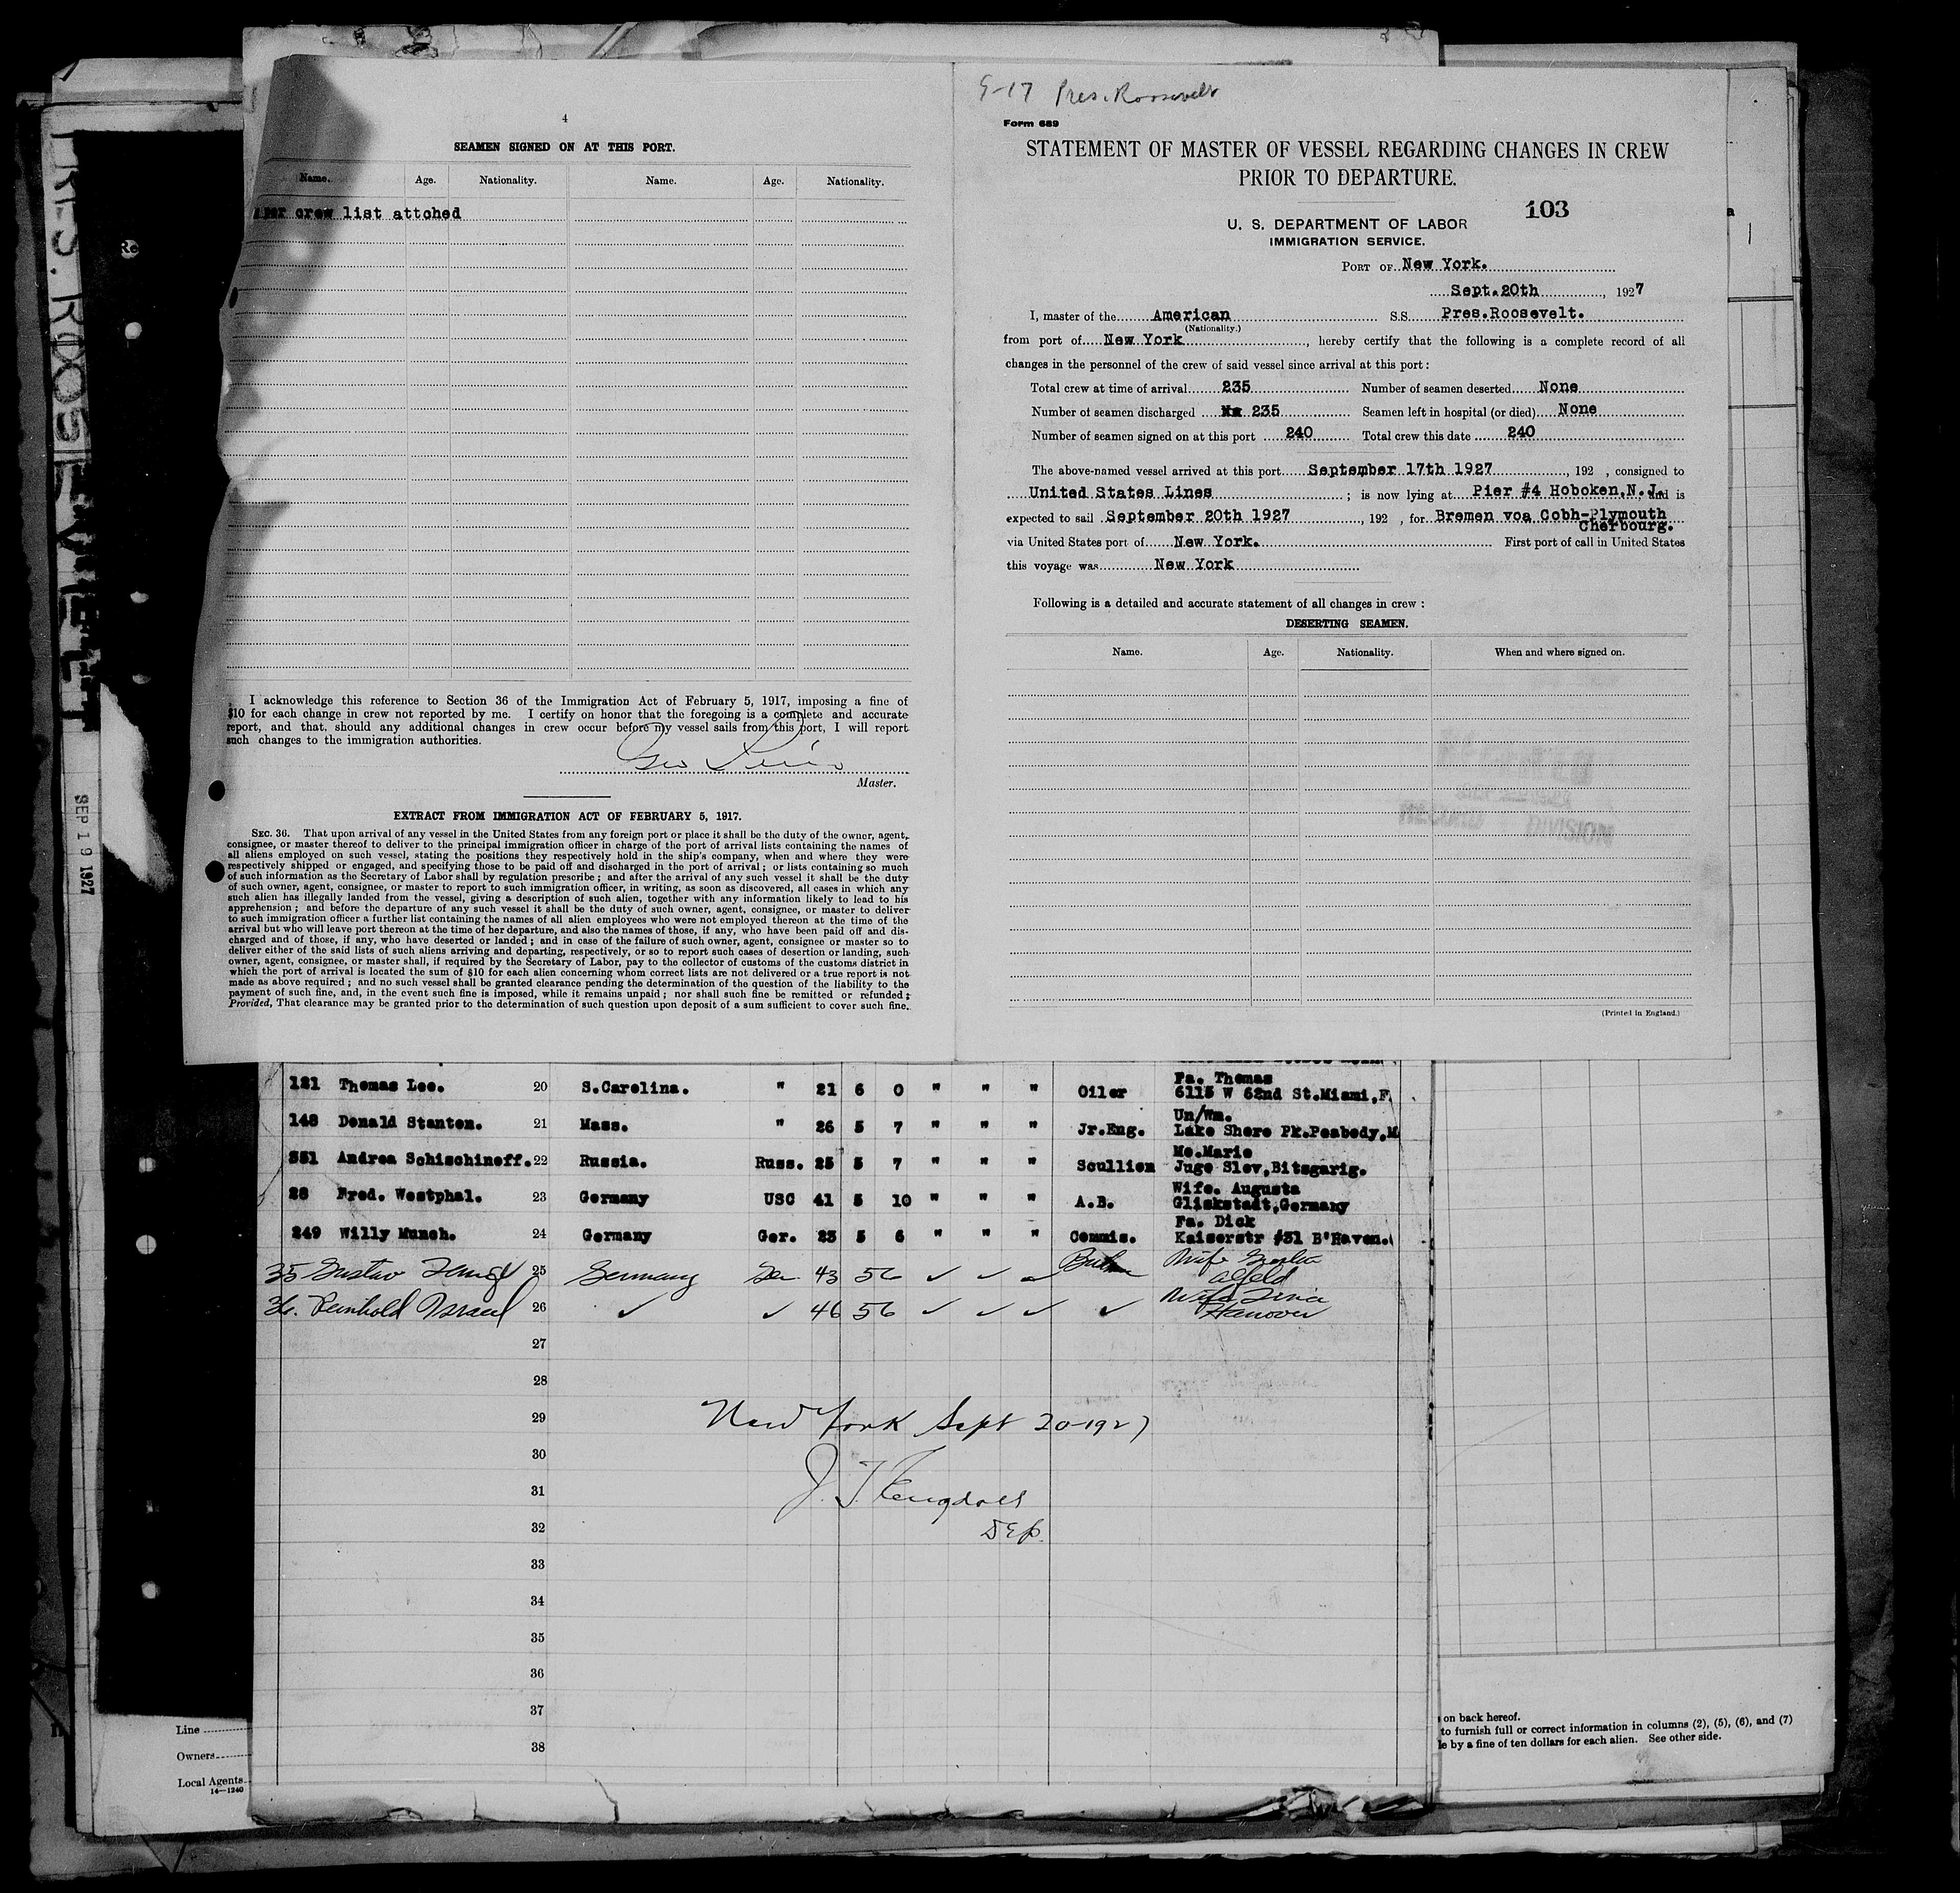 4
SEAMEN SIGNED ON AT THIS PORT.
Name. Age. Nationality. Name. Age. Nationality.
crew list attched
I acknowledge this reference to Section 36 of the Immigration Act of February 5, 1917, imposing a fine of
$10 for each change in crew not reported by me. I certify on honor that the foregoing is a complete and accurate
report, and that should any additional changes in crew occur before my vessel sails from this port, I will report
such changes to the immigration authorities.
Master.
EXTRACT FROM IMMIGRATION ACT OF FEBRUARY 5, 1917.
SEC. 36. That upon arrival of any vessel in the United States from any foreign port or place it shall be the duty of the owner, agent,
consignee, or master thereof to deliver to the principal immigration officer in charge of the port of arrival lists containing the names of
all aliens employed on such vessel, stating the positions they respectively hold in the ship's company, when and where they were
respectively shipped or engaged, and specifying those to be paid off and discharged in the port of arrival; or lists containing so much
of such information as the Secretary of Labor shall by regulation prescribe; and after the arrival of any such vessel it shall be the duty
of such owner, agent, consignee, or master to report to such immigration officer, in writing, as soon as discovered, all cases in which any
such alien has illegally landed from the vessel, giving a description of such alien, together with any information likely to lead to his
apprehension; and before the departure of any such vessel it shall be the duty of such owner, agent, consignee, or master to deliver
to such immigration officer a further list containing the names of all alien employees who were not employed thereon at the time of the
arrival but who will leave port thereon at the time of her departure, and also the names of those, if any, who have been paid off and dis-
charged and of those, if any, who have deserted or landed; and in case of the failure of such owner, agent, consignee or master so to
deliver either of the said lists of such aliens arriving and departing, respectively, or so to report such cases of desertion or landing, such
owner, agent, consignee, or master shall, if required by the Secretary of Labor, pay to the collector of customs of the customs district in
which the port of arrival is located the sum of $10 for each alien concerning whom correct lists are not delivered or a true report is not
made as above required; and no such vessel shall be granted clearance pending the determination of the question of the liability to the
payment of such fine, and, in the event such fine is imposed, while it remains unpaid; nor shall such fine be remitted or refunded;
Provided, That clearance may be granted prior to the determination of such question upon deposit of a sum sufficient to cover such fine.
9-17 Pres. Roosevelt
Form 689
STATEMENT OF MASTER OF VESSEL REGARDING CHANGES IN CREW
PRIOR TO DEPARTURE.
103
U. S. DEPARTMENT OF LABOR
IMMIGRATION SERVICE.
PORT OF New York.
Sept.20th, 1927
I, master of the American S.S. Pres.Roosevelt.
(Nationality.)
from port of New York, hereby certify that the following is a complete record of all
changes in the personnel of the crew of said vessel since arrival at this port:
Total crew at time of arrival 235 Number of seamen deserted None
Number of seamen discharged 235 Seamen left in hospital (or died) None
Number of seamen signed on at this port 240 Total crew this date 240
The above-named vessel arrived at this port September 17th 1927, 192 , consigned to
United States Lines ; is now lying at Pier #4 Hoboken.N.J. and is
expected to sail September 20th 1927, 192 , for Bremen voa Cobh-Plymouth
Cherbourg.
via United States port of New York. First port of call in United States
this voyage was New York
Following is a detailed and accurate statement of all changes in crew:
DESERTING SEAMEN.
Name. Age. Nationality. When and where signed on.
RECORD DIVISION
(Printed in England.)
PRES. ROOSEVELT
SEP 19 1927
121 Thomas Lee. 20 S.Carolina. " 21 6 0 " " " Oiler Fa. Thomas
6115 W 62nd St.Miami,F.
148 Donald Stanton. 21 Mass. " 26 5 7 " " " Jr.Eng. Un/Wm.
Lake Shore Pk.Peabody,M
351 Andrea Schischineff. 22 Russia. Russ. 25 5 7 " " " Scullion Mo.Marie
Juge Slov,Bitsgarig.
28 Fred. Westphal. 23 Germany USC 41 5 10 " " " A.B. Wife. Augusta
Gliskstadt,Germany
249 Willy Munch. 24 Germany Ger. 23 5 6 " " " Commis. Fa. Dick
Kaiserstr #31 B'Haven.
35 Gustav 25 Germany Ger 43 56 ✓ ✓ ✓ Wife
Alfeld
36. Reinhold Israel 26 ✓ ✓ 46 56 ✓ ✓ ✓ ✓ Wife
Hanover
27
28
29 New York Sept 20-1927
30
31
32
33
34
35
36
37
38
Line
Owners
Local Agents
14—1240
on back hereof.
to furnish full or correct information in columns (2), (5), (6), and (7)
by a fine of ten dollars for each alien. See other side.